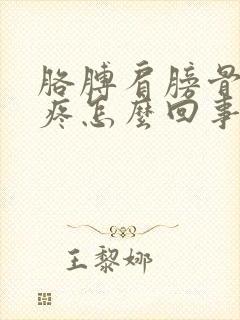 胳膊肩膀骨
疼怎麼回事
王黎娜